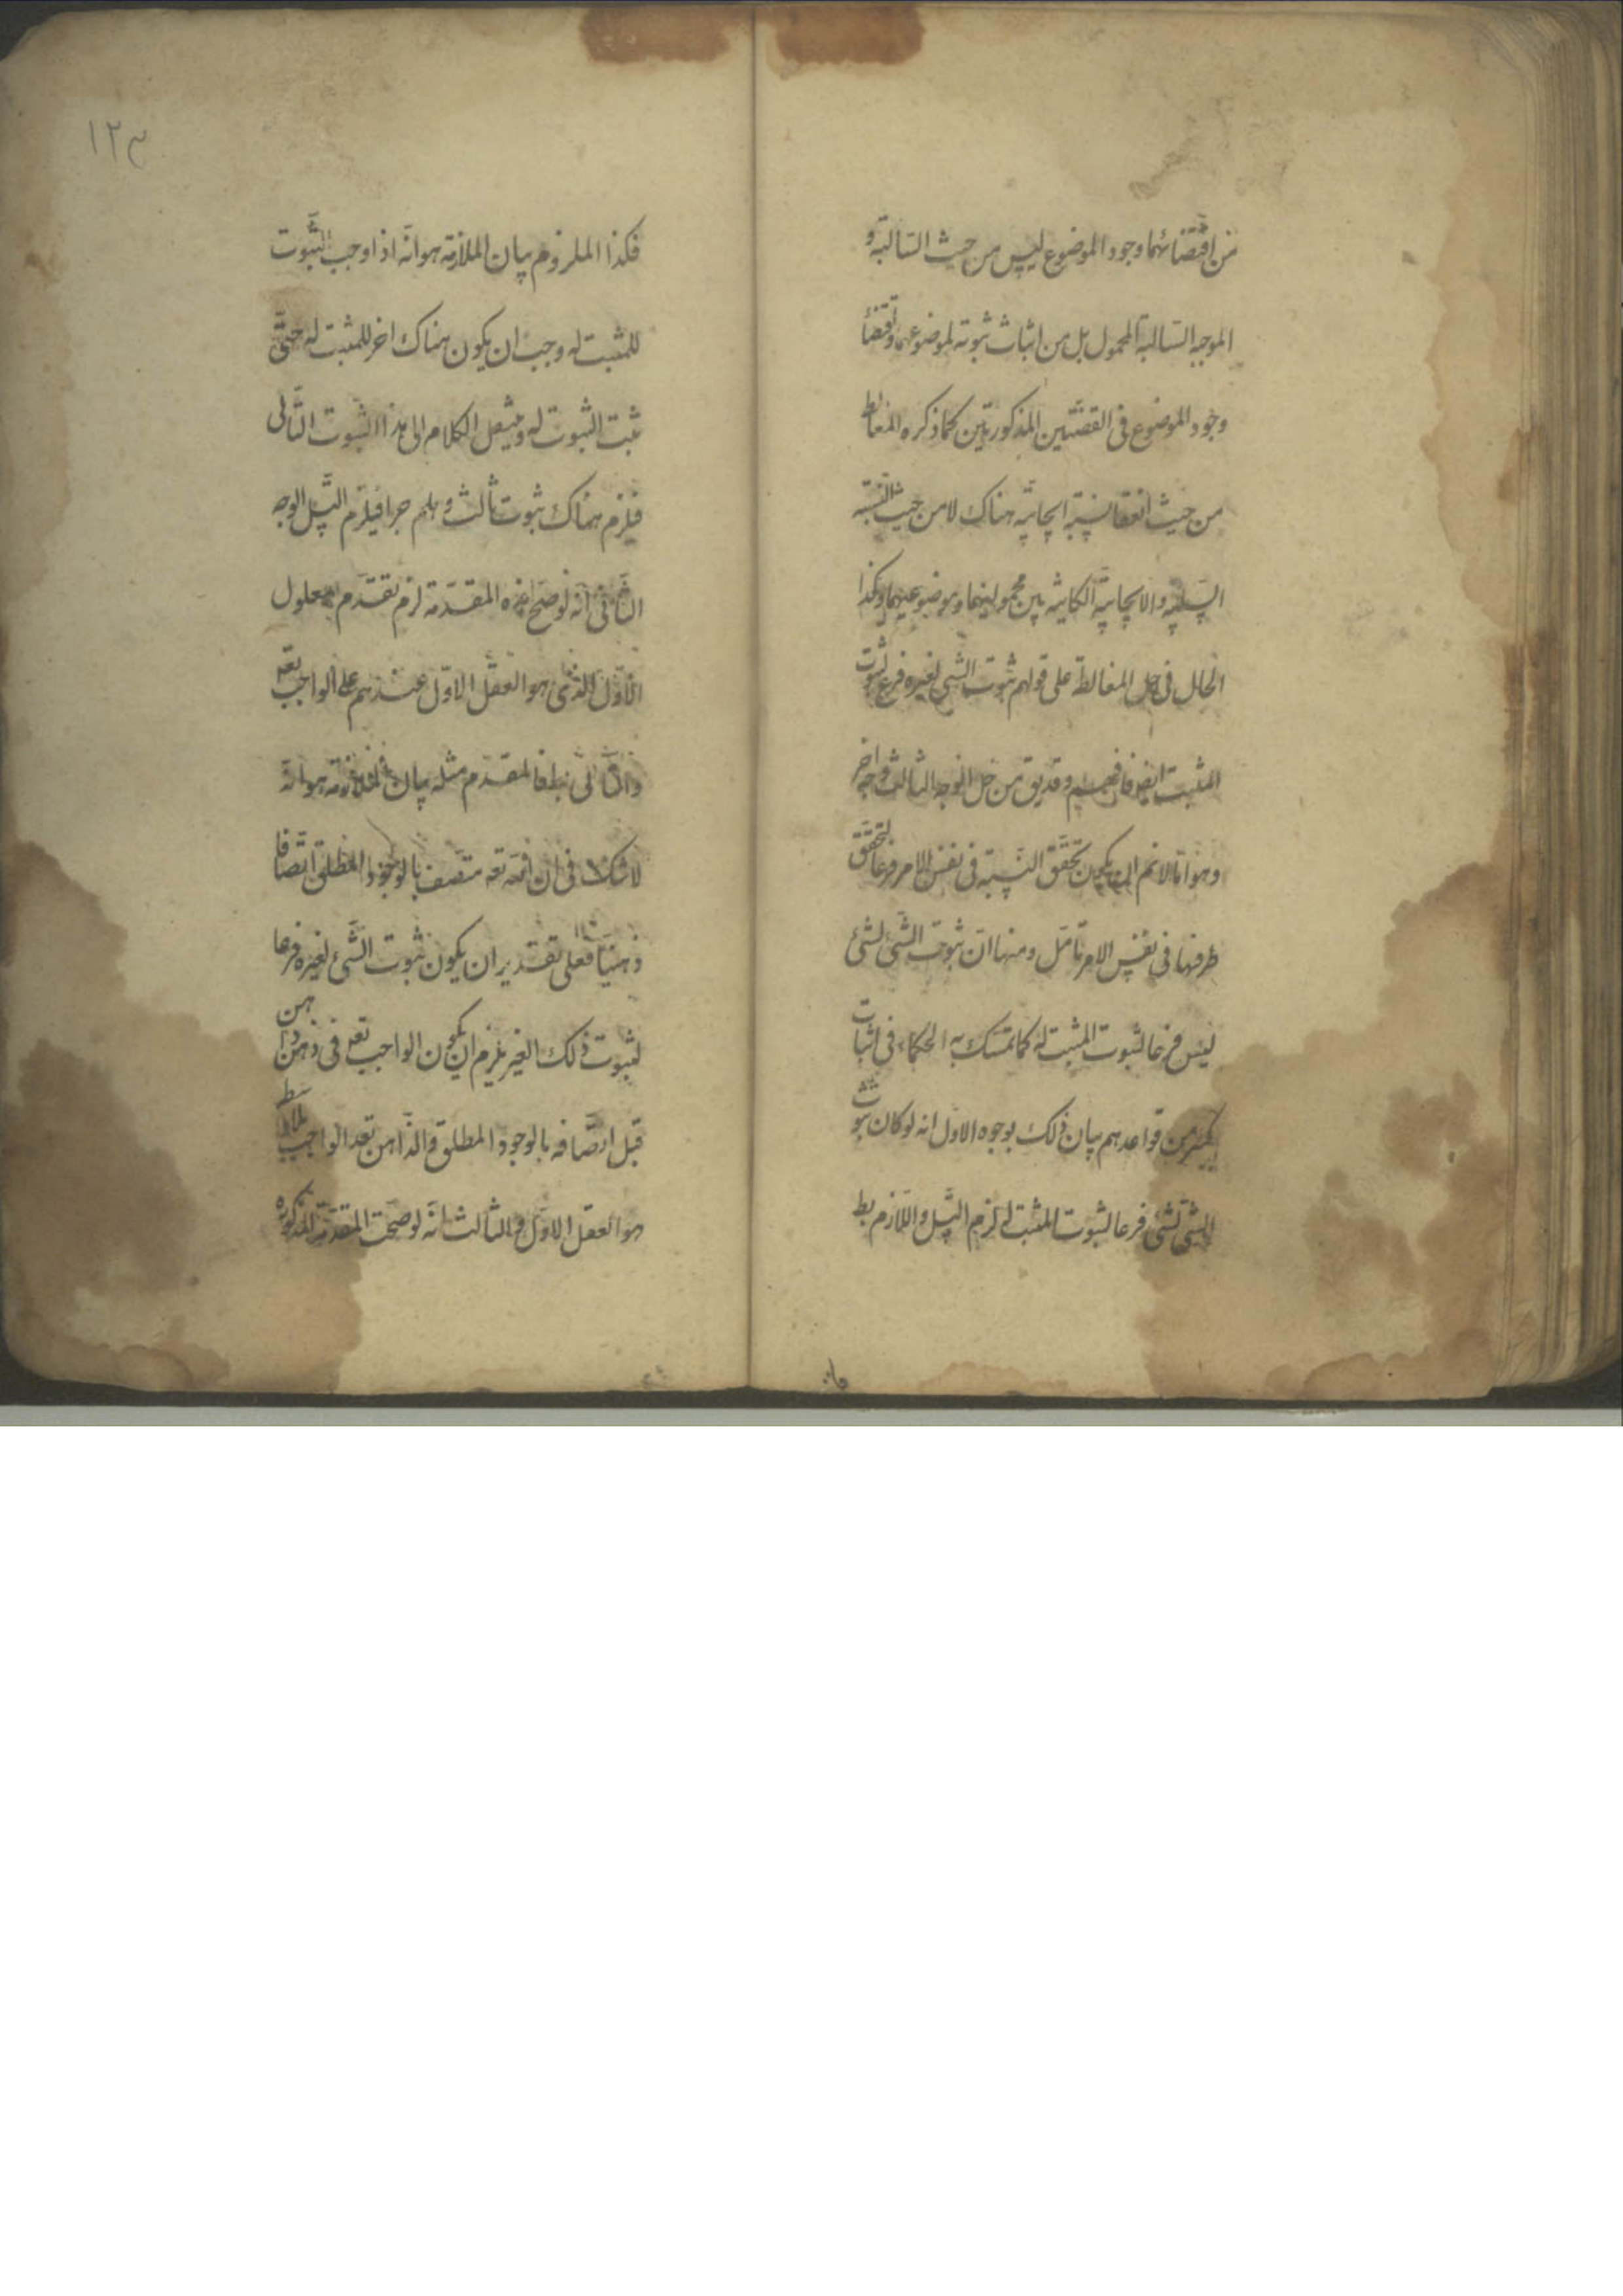 من اقتضائهما وجود الموضوع ليس من حيث السّالبة و
الموجبه السّالبة المحمول بل من اثبات ثبوته لموضوعهما واقتضا
وجود الموضوع فى القضيّتين المذكورتين كما ذكره المغالط
من حيث انعقا نسبة ايجابيّه هناك لا من حيث النسبة
السّلبيّه والايجابيّه الكائنه بين محموليهما وموضوعيهما وكذا
الحال فى حل المغالطة على قولهم ثبوت الشى لغيره فرع ثبوت
المثبت ايض فافهم وقد يق من حل الوجه الثالث وجه اخر
وهو انا لانم ان يكون تحقّق النّسبة فى نفس الامر فرعا لتحقّق
طرفيها فى نفس الامر تامّل ومنها ان ثبوت الشّئ لشئ
ليس فرعا لثبوت المثبت له كما تمسّك به الحكماء فى اثبات
كثير من قواعدهم بيان ذلك بوجوه الاول انه لو كان ثبوت
الشئ لشئ فرعا لثبوت المثبت له لزم التّسل واللّازم بط
١٢٣
فكذا الملزوم بيان الملازمة هو انّه اذا وجب الثّبوت
للمثبت له وجب ان يكون هناك اخر للمثبت له حتّى
ثبت الثبوت له وينقل الكلام الى هذا الثّبوت الثّانى
فلزم هناك ثبوت ثالث وهلم جرا فيلزم التّسل الوجه
الثّانى انّه لو صحّ هذه المقدّمة لزم تقدّم المعلول
الاوّل الذى هو العقل الاوّل عندهم على الواجب تعه
والتّالى بط فالمقدّم مثله بيان الملازمة هو انّه
لا شك فى ان الله تعه متّصف بالوجود المطلق اتّصافا
ذهنيّا فعلى تقدير ان يكون ثبوت الشّئ لغيره فرعا
لثبوت ذلك الغير يلزم ان يكون الواجب تعه فى ذهن ذاهن
قبل اتّصافه بالوجود المطلق والذّاهن بعد الواجب
هو العقل الاوّل والثالث انّه لو صحّت المقدّمة المذكوره